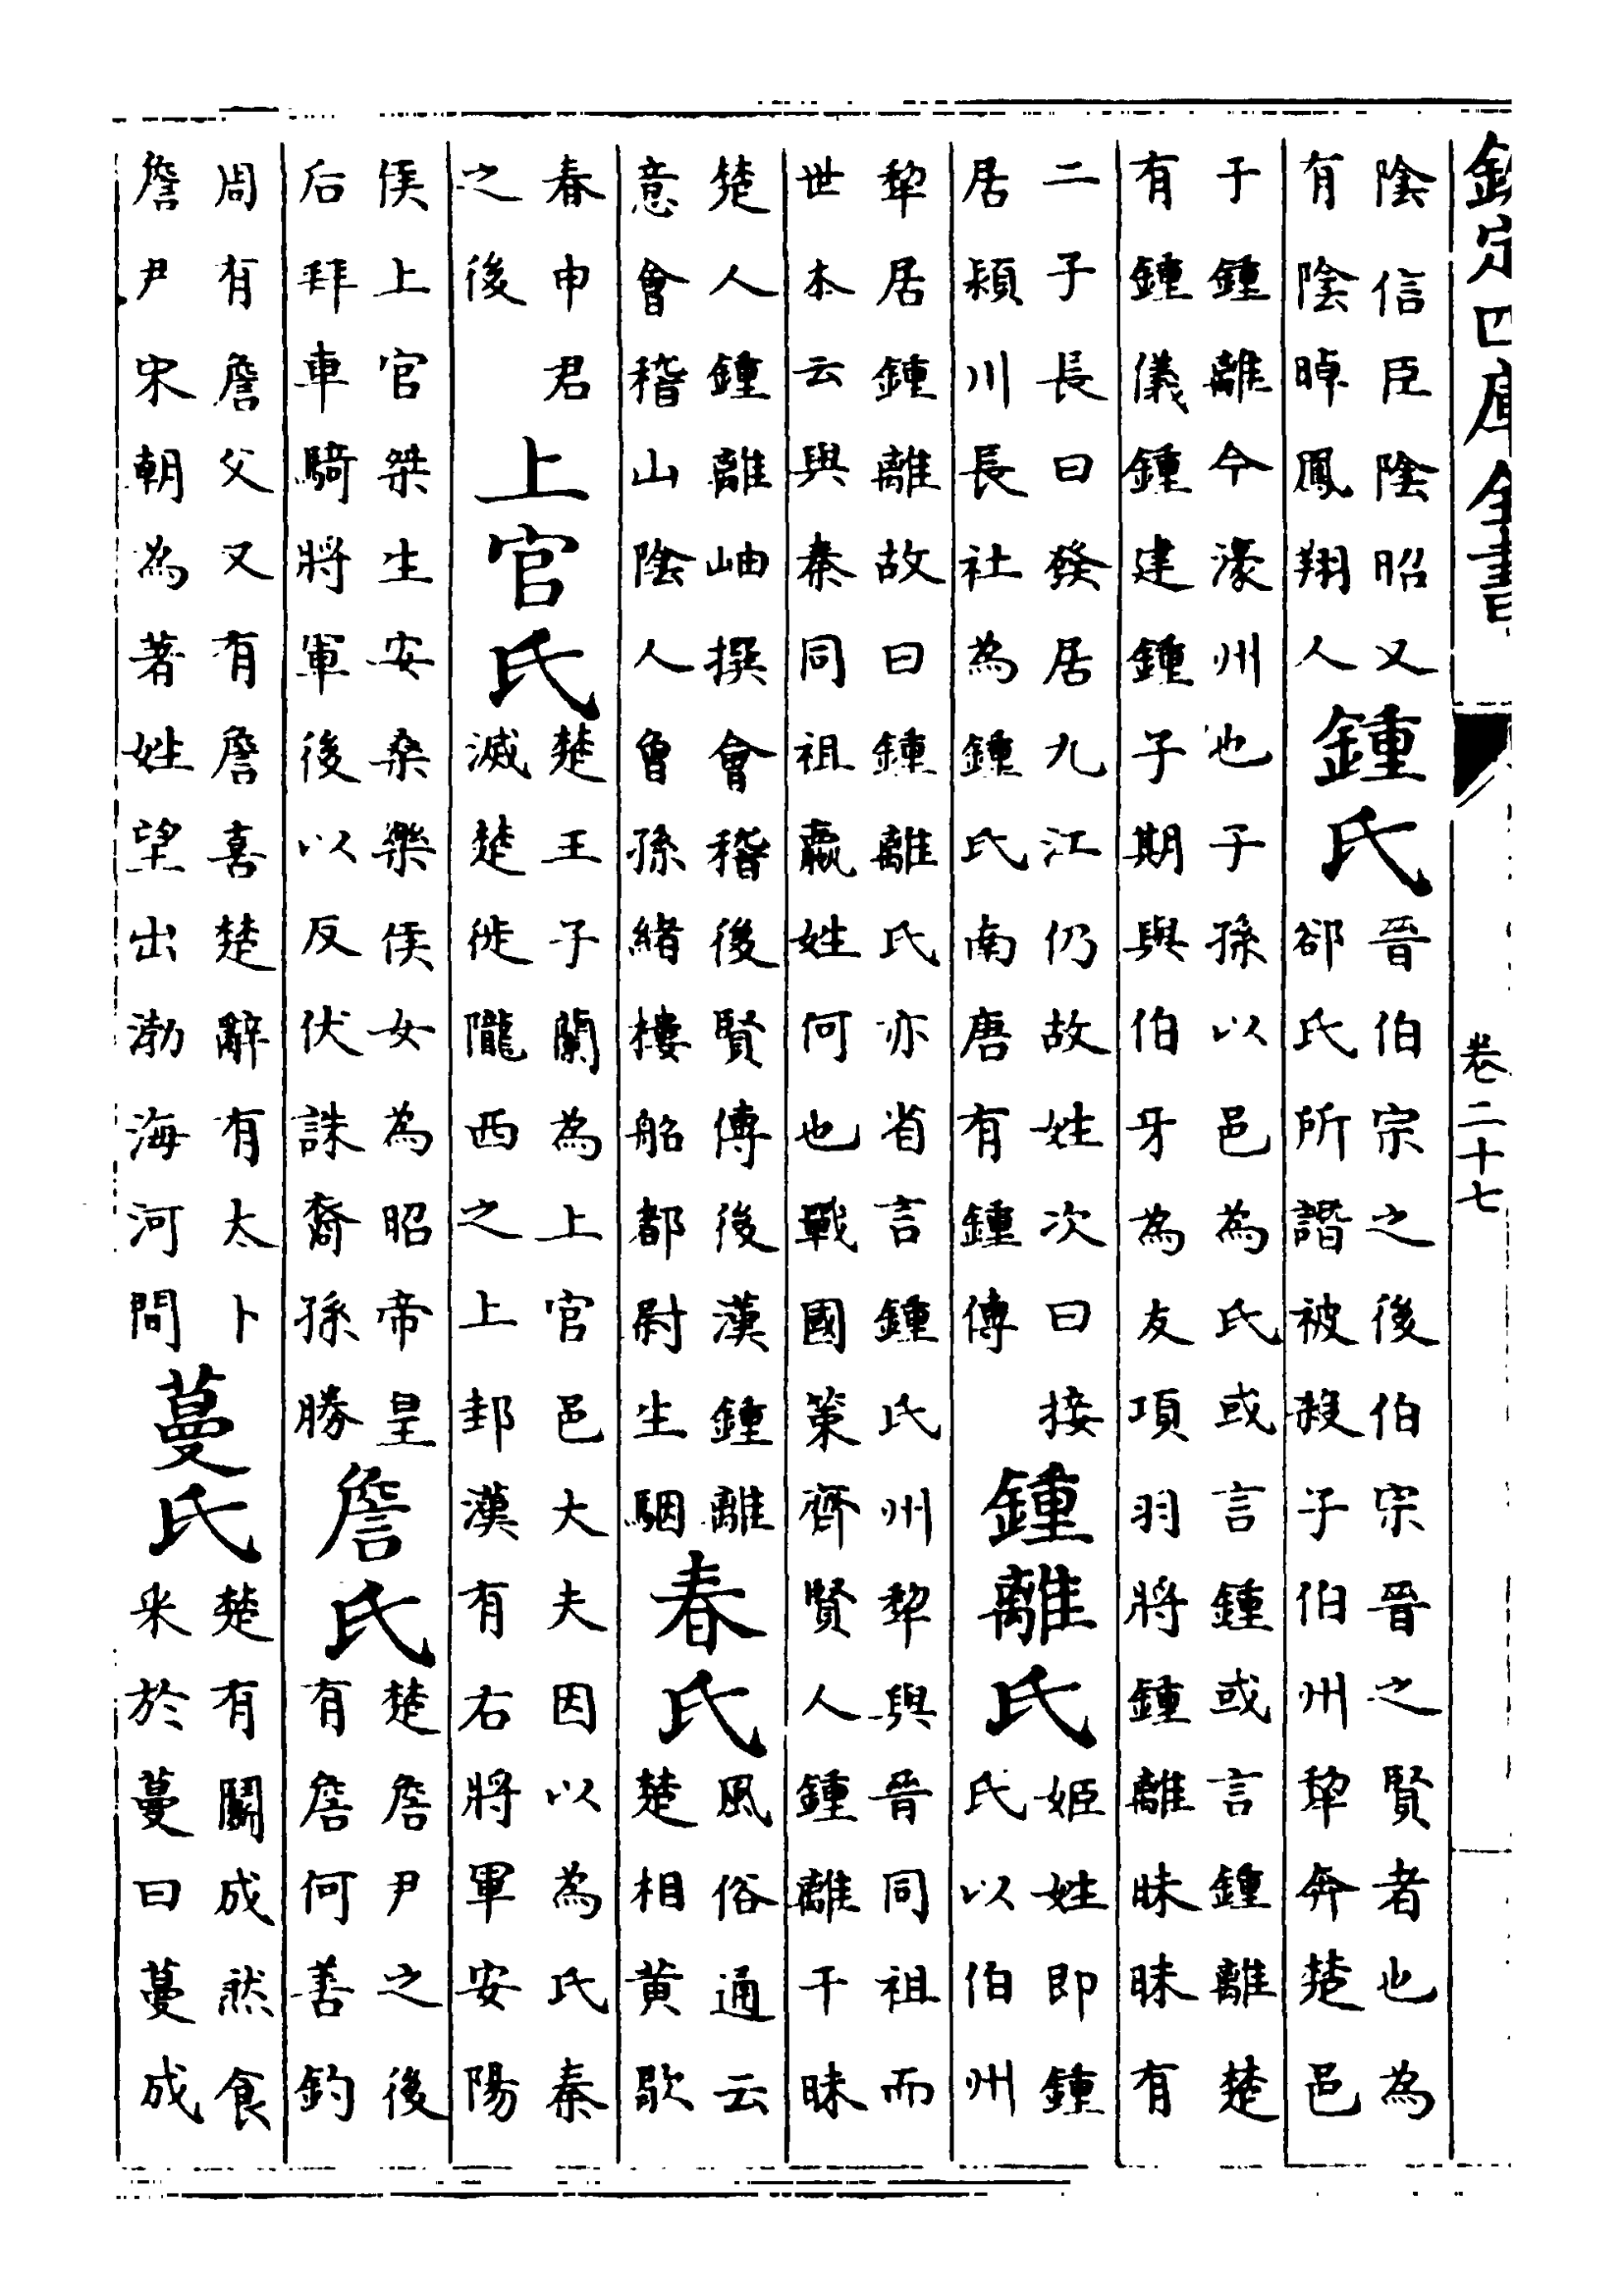 欽定四庫全書
卷二十七
陰信臣陰昭又
有陰晫鳳翔人
鍾氏
晉伯宗之後伯宗晉之賢者也為
郤氏所譖被殺子伯州犂奔楚邑
于鍾離今濠州也子孫以邑為氏或言鍾或言鍾離楚
有鍾儀鍾建鍾子期與伯牙為友項羽將鍾離昧昧有
二子長曰發居九江仍故姓次曰接
居潁川長社為鍾氏南唐有鍾傳
鍾離氏
姬姓即鍾
氏以伯州
犂居鍾離故曰鍾離氏亦省言鍾氏州犂與晉同祖而
世本云與秦同祖嬴姓何也戰國策齊賢人鍾離干昧
楚人鍾離岫撰會稽後賢傳後漢鍾離
意會稽山陰人曾孫緒樓船都尉生駰
春氏
風俗通云
楚相黄歇
春申君
之後
上官氏
楚王子蘭為上官邑大夫因以為氏秦
滅楚徙隴西之上邽漢有右將軍安陽
侯上官桀生安桑樂侯女為昭帝皇
后拜車騎將軍後以反伏誅裔孫勝
詹氏
楚詹尹之後
有詹何善釣
周有詹父又有詹喜楚辭有太卜
詹尹宋朝為著姓望出渤海河間
蔓氏
楚有鬭成然食
采於蔓曰蔓成